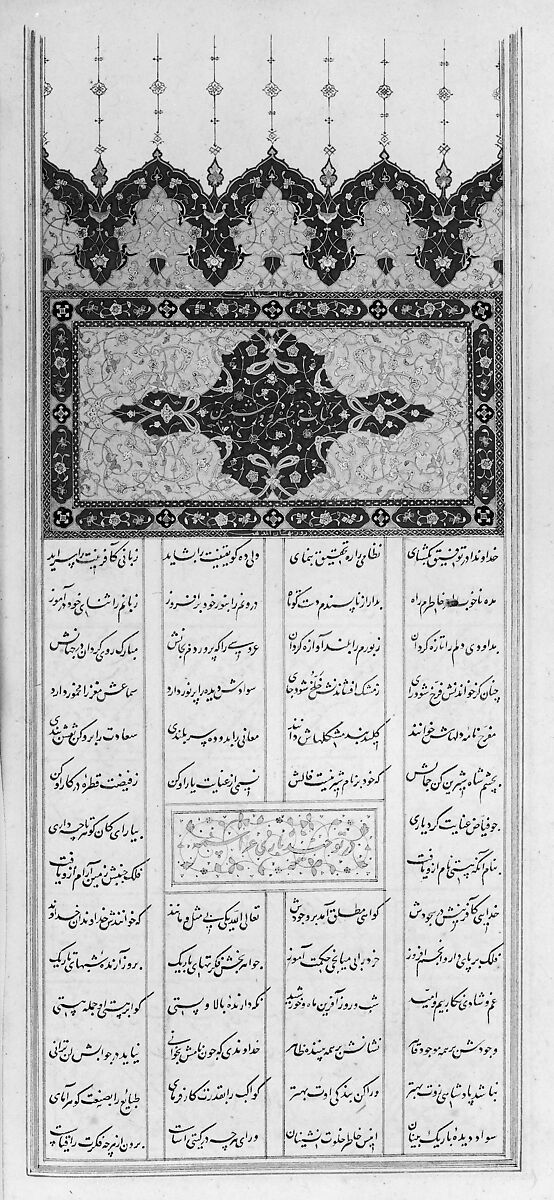 خداوندا در توفیق بگشای نظامی را ره تحقیق بنمای دلی ده کو یقینت را بشاید زبانی کآفرینت را سراید
مده ناخوب را بر خاطرم راه بدار از ناپسندم دست کوتاه درونم را بنور خود برافروز زبانم را ثنای خود درآموز
بداودی دلم را تازه گردان زبورم را بلند آوازه گردان عروسی را که پروردم بجانش مبارک روی گردان در جهانش
چنان کز خواندنش فرخ شود رای ز مشک افشاندنش خلخ شود جای سوادش دیده را پر نور دارد سماعش مغز را دارد
مفرح نامه دلهاش خوانند کلید بند مشکلهاش دانند معانی را بدو ده سربلندی سعادت را بدو کن نقش بندی
بچشم شاه شیرین کن جمالش که خود بر نام شیرینست فالش نسیمی از عنایت یار او کن ز فیضت قطره در کار او کن
چو فیاض عنایت کرد یاری بیار ای کان گوهر تا چه داری
بنام آنکه هستی نام ازو یافت فلک جنبش زمین آرام ازو یافت
در توحید باری عز اسمه
خدایی کآفرینش در سجودش گواهی مطلق آمد بر وجودش تعالی الله یکی بی مثل و مانند که خوانندش خداوندان خداوند
فلک بر پای دار و انجم افروز خرد را بی میانجی حکمت آموز جواهر بخش فکرتهای باریک بروز آرنده شبهای تاریک
غم و شادی نگار و بیم و امید شب و روز آفرین و ماه و خورشید نگه دارنده بالا و پستی گوا بر هستی او جمله هستی
وجودش بر همه موجود قاهر نشانش بر همه بیننده ظاهر خداوندی که چون نامش بخوانی نیاید در جوابش لن ترانی
نباشد پادشاهی زوت بهتر ورا کن بندگی اوت بهتر کواکب را بقدرت کارفرمای طبایع را بصنعت گوهرآمای
سواد دیده باریک بینان انیس خاطر خلوت نشینان ورای هرچه در گیتی اساست برون از هرچه در فکرت قیاست